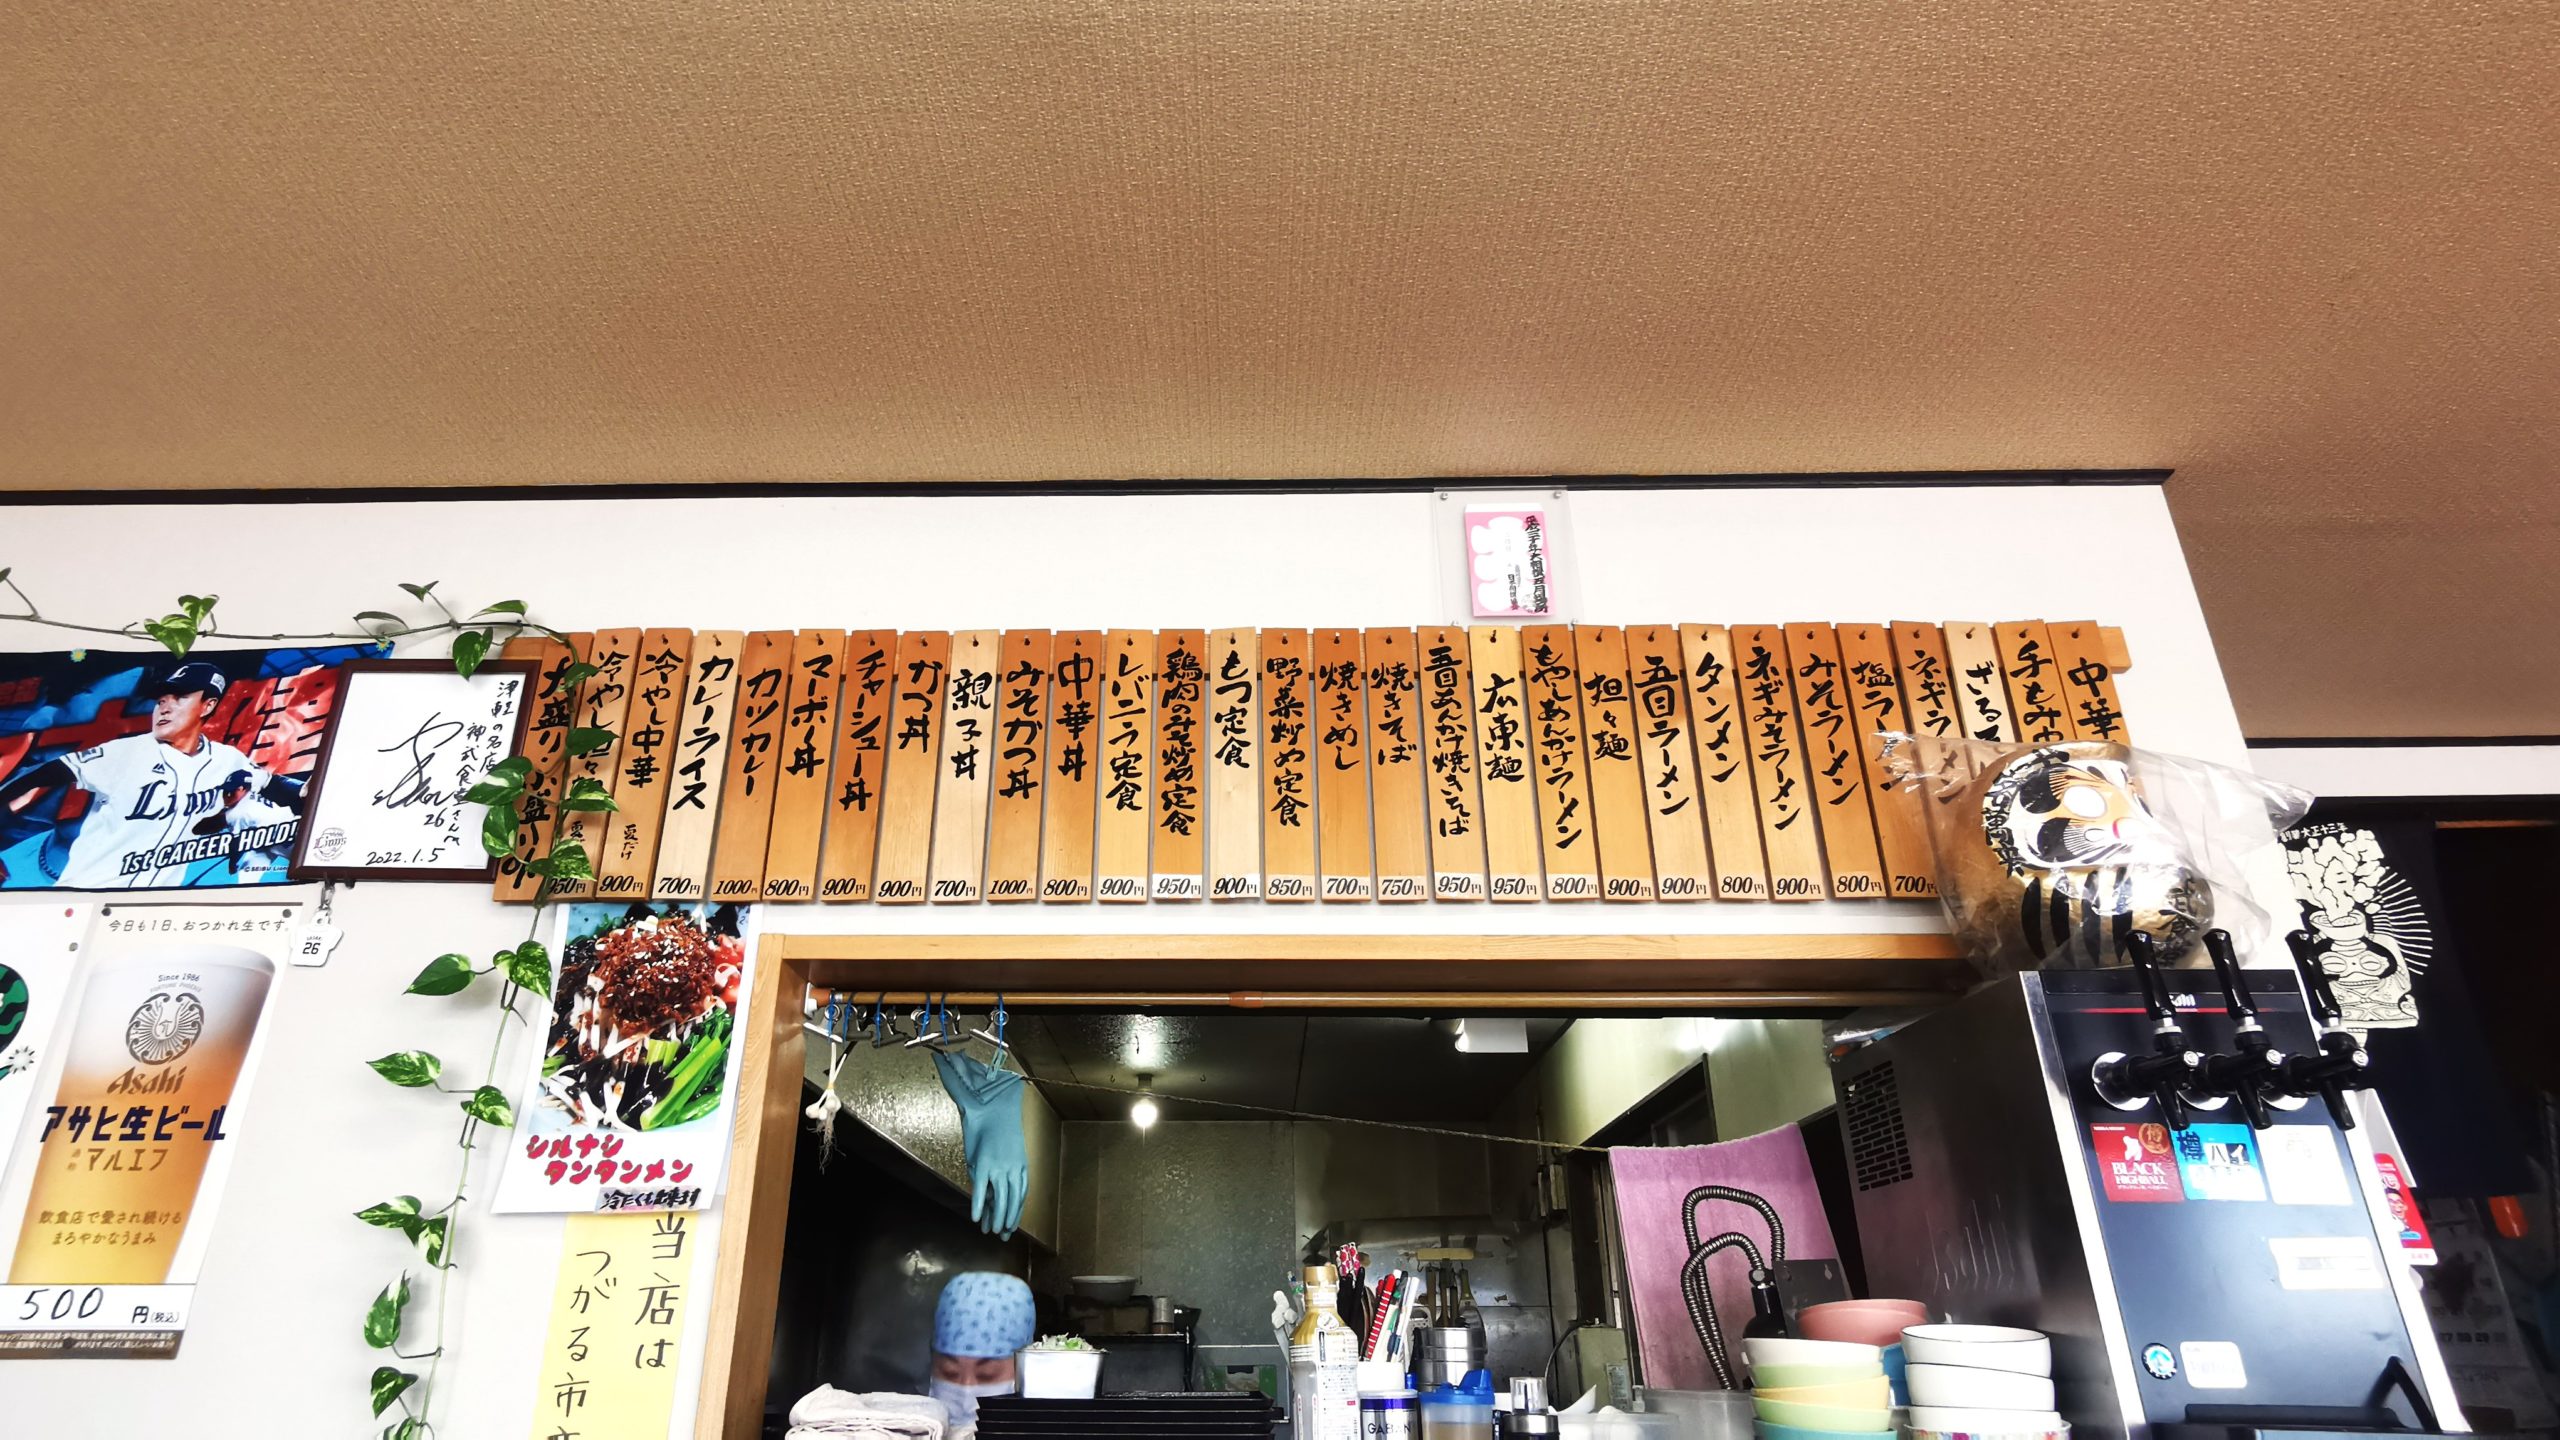 中華
手もみ中
ざる
ネギラーメン
塩ラーメン
700円
みそラーメン
800円
ネギみそラーメン
900円
タンメン
800円
五目ラーメン
900円
担々麺
900円
もやしあんかけラーメン
800円
広東麺
950円
五目あんかけ焼きそば
950円
焼きそば
750円
焼きめし
700円
野菜炒め定食
850円
もつ定食
900円
鶏肉のみそ炒め定食
950円
レバニラ定食
900円
中華丼
800円
みそかつ丼
1000円
親子丼
700円
かつ丼
900円
チャーシュー丼
900円
マーボー丼
800円
カツカレー
1000円
カレーライス
700円
冷やし中華
夏だけ
900円
冷やし担々麺
950円
大盛り・小盛り
津軽の名店
神武食堂さん江
26
Lions
2022.1.5
Lions
1st CAREER HOLD!
26
今日も1日、おつかれ生です。
Since 1986
FORTUNE PHOENIX
Asahi
アサヒ生ビール
通称
マルエフ
飲食店で愛され続ける
まろやかなうまみ
500円(税込)
シルナシ
タンタンメン
冷たくも出来ます
当店は
つがる市
大正十三年
Asahi
BLACK
HIGHBALL
樽ハイ